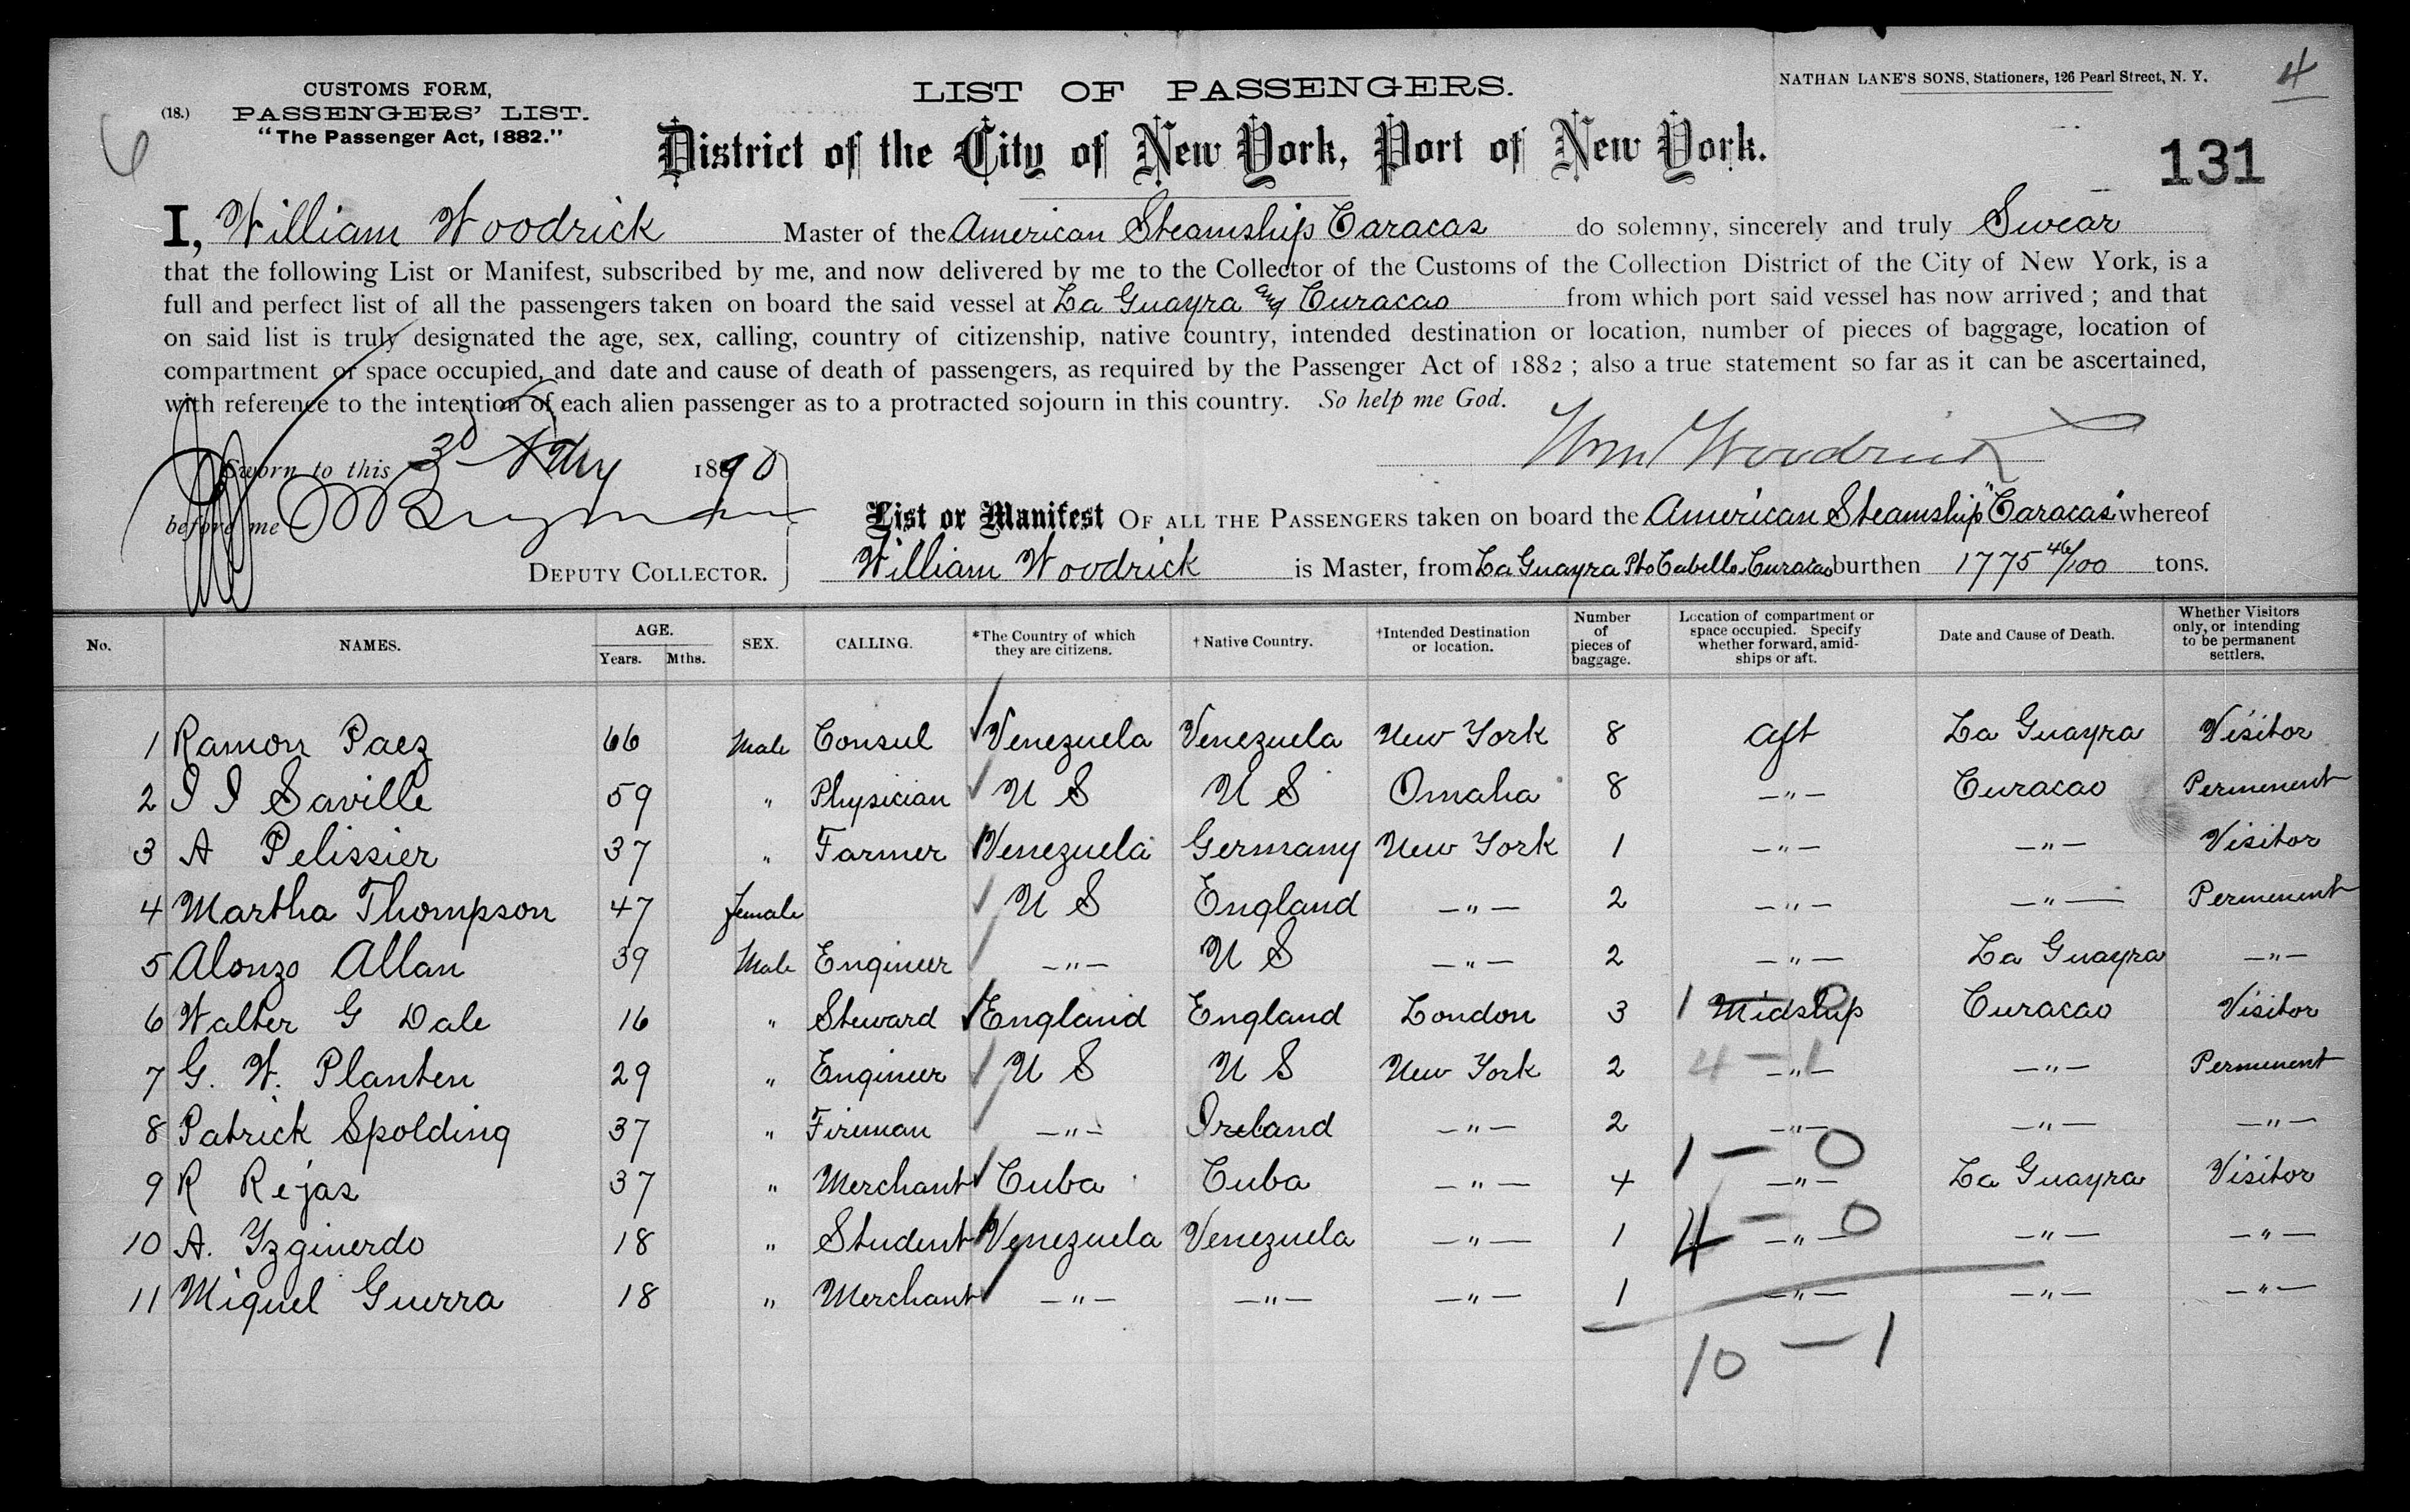 CUSTOMS FORM,
(18.) PASSENGERS' LIST.
"The Passenger Act, 1882."
LIST OF PASSENGERS.
NATHAN LANE'S SONS, Stationers, 126 Pearl Street, N. Y.
4
6
District of the City of New York, Port of New York.
131
I, William Woodrick Master of the American Steamship Caracas do solemny, sincerely and truly Swear
that the following List or Manifest, subscribed by me, and now delivered by me to the Collector of the Customs of the Collection District of the City of New York, is a
full and perfect list of all the passengers taken on board the said vessel at La Guayra and Curacao from which port said vessel has now arrived ; and that
on said list is truly designated the age, sex, calling, country of citizenship, native country, intended destination or location, number of pieces of baggage, location of
compartment or space occupied, and date and cause of death of passengers, as required by the Passenger Act of 1882 ; also a true statement so far as it can be ascertained,
with reference to the intention of each alien passenger as to a protracted sojourn in this country. So help me God.
Wm Woodrick
Sworn to this 3d 1890
before me
List or Manifest OF ALL THE PASSENGERS taken on board the American Steamship "Caracas" whereof
DEPUTY COLLECTOR. William Woodrick is Master, from La Guayra Pto Cabello Curacao burthen 1775 46/100 tons.
No. NAMES. AGE. Years. Mths. SEX. CALLING. *The Country of which they are citizens. † Native Country. †Intended Destination or location. Number of pieces of baggage. Location of compartment or space occupied. Specify whether forward, amidships or aft. Date and Cause of Death. Whether Visitors only, or intending to be permanent settlers.
1 Ramon Paez 66 Male Consul Venezuela Venezuela New York 8 aft La Guayra Visitor
2 J J Saville 59 " Physician U S U S Omaha 8 -"- Curacao Permenent
3 A Pelissier 37 " Farmer Venezuela Germany New York 1 -"- -"- Visitor
4 Martha Thompson 47 female U S England -"- 2 -"- -"- Permenent
5 Alonzo Allan 39 Male Engineer -"- U S -"- 2 -"- La Guayra -"-
6 Walter G Dale 16 " Steward England England London 3 Midship Curacao Visitor
7 G. W. Planten 29 " Engineer U S U S New York 2 -"- -"- Permenent
8 Patrick Spolding 37 " Fireman -"- Ireland -"- 2 -"- -"- -"-
9 R Rejas 37 " Merchant Cuba Cuba -"- 4 -"- La Guayra Visitor
10 A. Yzginerdo 18 " Student Venezuela Venezuela -"- 1 -"- -"- -"-
11 Miguel Guerra 18 " Merchant -"- -"- -"- 1 -"- -"- -"-
1 - 0
4 - 1
1 - 0
4 - 0
10 - 1